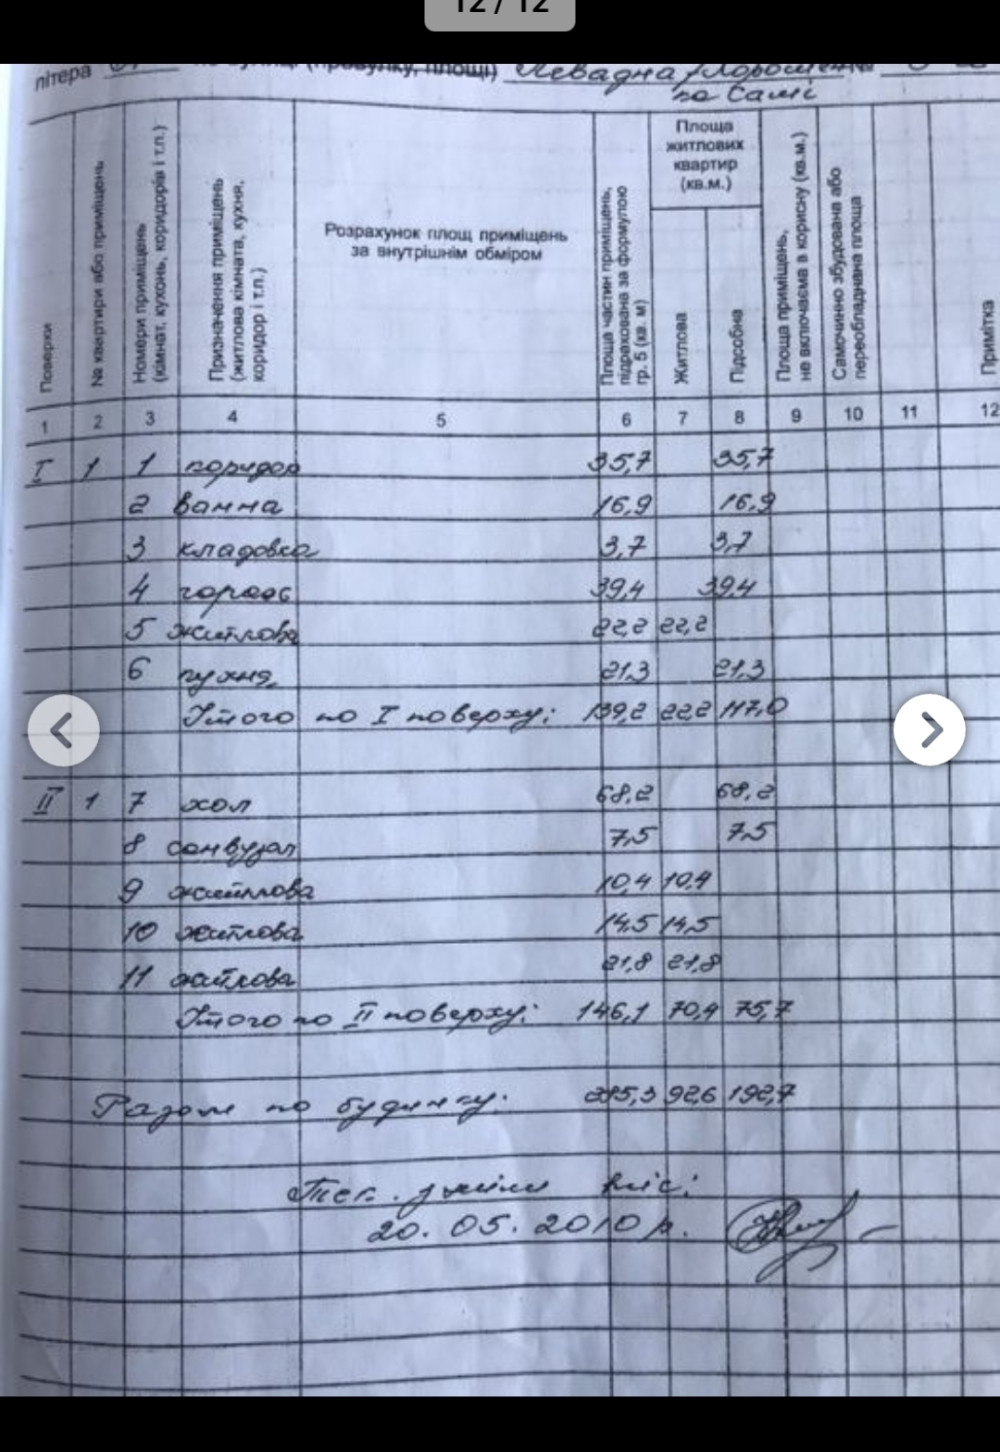 12 / 12
літера по вулиці (провулку, площі) Левадна /
по Самі
Поверхи
№ квартири або приміщень
Номери приміщень (кімнат, кухонь, коридорів і т.п.)
Призначення приміщень (житлова кімната, кухня, коридор і т.п.)
Розрахунок площ приміщень
за внутрішнім обміром
Площа частин приміщень, підрахована за формулою гр. 5 (кв. м)
Площа
житлових
квартир
(кв.м.)
Житлова
Підсобна
Площа приміщень, не включаєма в корисну (кв.м.)
Самочинно збудована або переобладнана площа
Примітка
1 2 3 4 5 6 7 8 9 10 11 12
I 1 1 коридор 35,7 35,7
2 ванна 16,9 16,9
3 кладовка 3,7 3,7
4 гараж 39,4 39,4
5 житлова 22,2 22,2
6 кухня 21,3 21,3
Итого по I поверху: 139,2 22,2 117,0
II 1 7 хол 68,2 68,2
8 санвузол 7,5 7,5
9 житлова 10,4 10,4
10 житлова 14,5 14,5
11 житлова 21,8 21,8
Итого по II поверху: 146,1 70,4 75,7
Разом по будинку: 285,3 92,6 192,7
20.05.2010 р.